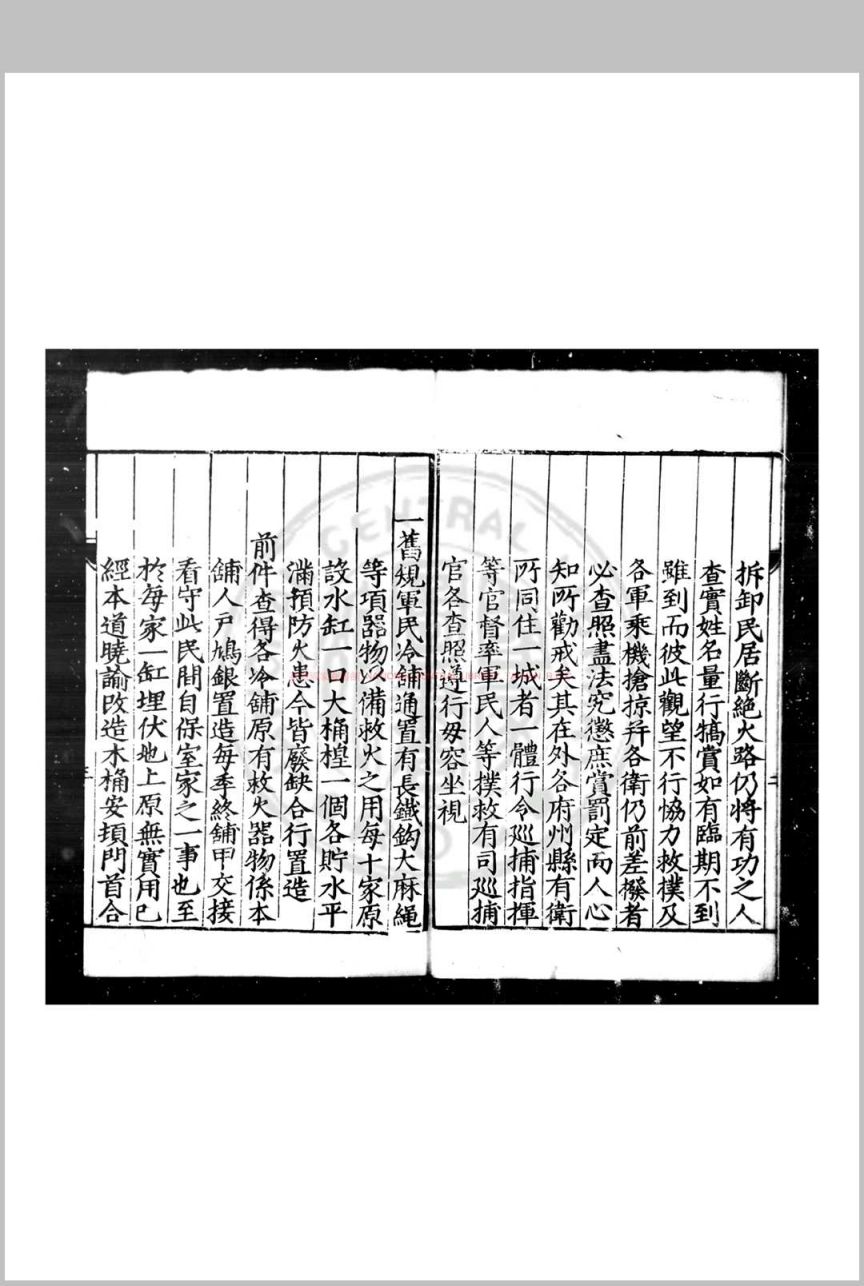 拆卸民居斷絕火路仍將有功之人
查實姓名量行犒賞如有臨期不到
雖到而彼此觀望不行恊力救撲及
各軍乘機搶掠并各衛仍前差撥者
必查照盡法究懲庶賞罰定而人心
知所勸戒矣其在外各府州縣有衛
所同住一城者一體行令廵捕指揮
等官督率軍民人等撲救有司廵捕
官各查照遵行毋容坐視
一舊規軍民冷舖通置有長鐵鈎大麻繩
等項器物以備救火之用每十家原
設水缸一口大桶楻一個各貯水平
滿預防火患今皆廢缺合行置造
前件查得各冷舖原有救火器物係本
舖人戸鳩銀置造每季終舖甲交接
看守此民間自保室家之一事也至
於每家一缸埋伏地上原無實用已
經本道曉諭改造木桶安頓門首合
二
三
CENTRAL